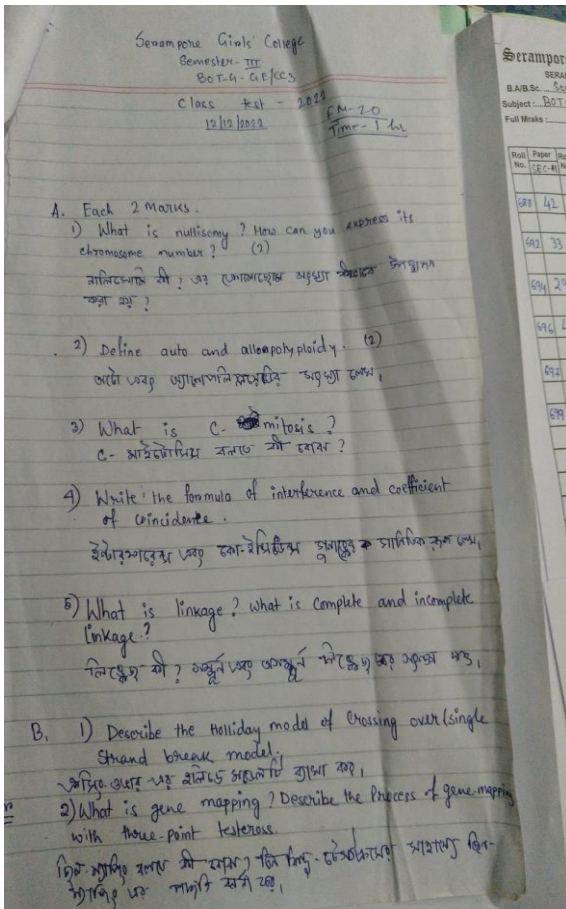 Serampore Girls' College
Semester - III
BOT-G-GE/CC3
Class test - 2022
12/12/2022
FM-20
Time - 1 hr
A. Each 2 marks.
1) What is nullisomy? How can you express its
chromosome number? (2)
নালিসোমি কী? এর ক্রোমোজোম সংখ্যা কীভাবে উপস্থাপন
করা হয়?
2) Define auto and allopolyploidy. (2)
অটো এবং অ্যালোপলিপ্লয়েডির সংজ্ঞা লেখ।
3) What is C- mitosis?
C- মাইটোসিস বলতে কী বোঝ?
4) Write the formula of interference and coefficient
of coincidence.
ইন্টারফারেন্স এবং কো-ইন্সিডেন্স গুণাঙ্কের গাণিতিক রূপ লেখ।
5) What is linkage? What is complete and incomplete
linkage?
লিঙ্কেজ কী? সম্পূর্ণ এবং অসম্পূর্ণ লিঙ্কেজ এর সংজ্ঞা দাও।
B. 1) Describe the Holliday model of Crossing over (single
Strand break model.
ক্রসিং-ওভার এর হলিডে মডেলটি ব্যাখ্যা কর।
2) What is gene mapping? Describe the Process of gene-mapping
with three-point testcross.
জিন-ম্যাপিং বলতে কী বোঝ? তিন বিন্দু-টেস্টক্রসের সাহায্যে জিন-
ম্যাপিং এর পদ্ধতি বর্ণনা কর।
Serampor
SERA
B.A/B.Sc.
Subject: BOT
Full Mraks:
Roll No. Paper
SEC-A
680 42
692 33
694 29
696
697
699